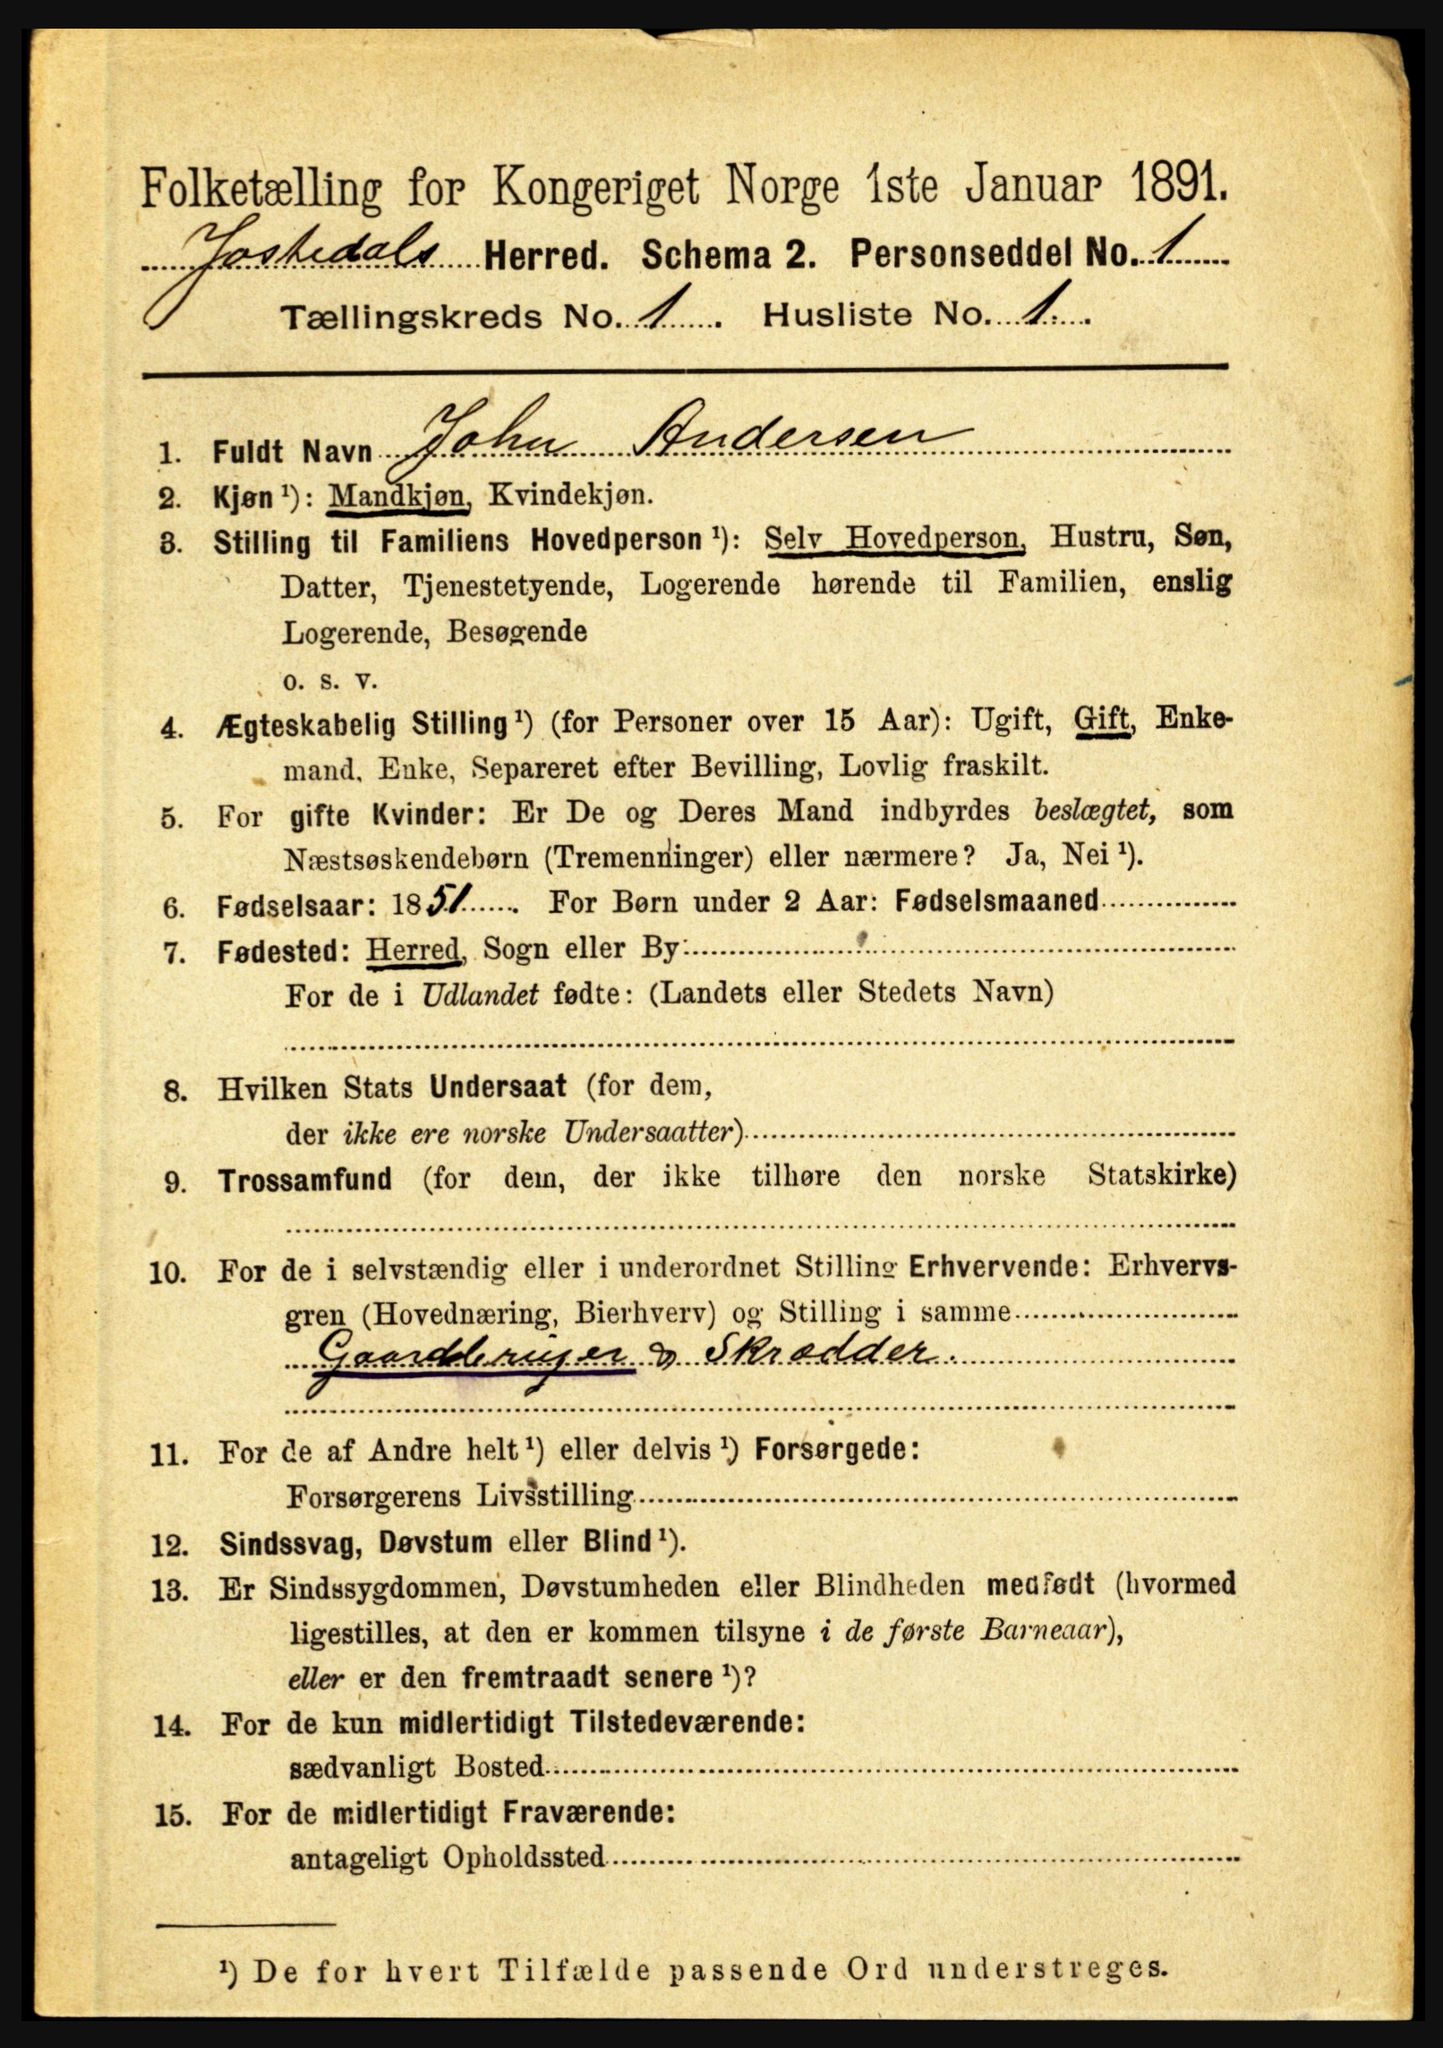 Folketælling for Kongeriget Norge 1ste Januar 1891.
Jostedals Herred. Schema 2. Personseddel No. 1
Tællingskreds No. 1. Husliste No. 1.
1. Fuldt Navn John Andersen
2. Kjøn ¹): Mandkjøn, Kvindekjøn.
3. Stilling til Familiens Hovedperson ¹): Selv Hovedperson, Hustru, Søn,
Datter, Tjenestetyende, Logerende hørende til Familien, enslig
Logerende, Besøgende
o. s. v.
4. Ægteskabelig Stilling ¹) (for Personer over 15 Aar): Ugift, Gift, Enke-
mand, Enke, Separeret efter Bevilling, Lovlig fraskilt.
5. For gifte Kvinder: Er De og Deres Mand indbyrdes beslægtet, som
Næstsøskendebørn (Tremenninger) eller nærmere? Ja, Nei ¹).
6. Fødselsaar: 1851. For Børn under 2 Aar: Fødselsmaaned
7. Fødested: Herred, Sogn eller By:
For de i Udlandet fødte: (Landets eller Stedets Navn)
8. Hvilken Stats Undersaat (for dem,
der ikke ere norske Undersaatter)
9. Trossamfund (for dem, der ikke tilhøre den norske Statskirke)
10. For de i selvstændig eller i underordnet Stilling Erhvervende: Erhvervs-
gren (Hovednæring, Bierhverv) og Stilling i samme
Gaardbruger & Skrædder.
11. For de af Andre helt ¹) eller delvis ¹) Forsørgede:
Forsørgerens Livsstilling
12. Sindssvag, Døvstum eller Blind ¹).
13. Er Sindssygdommen, Døvstumheden eller Blindheden medfødt (hvormed
ligestilles, at den er kommen tilsyne i de første Barneaar),
eller er den fremtraadt senere ¹)?
14. For de kun midlertidigt Tilstedeværende:
sædvanligt Bosted
15. For de midlertidigt Fraværende:
antageligt Opholdssted
¹) De for hvert Tilfælde passende Ord understreges.